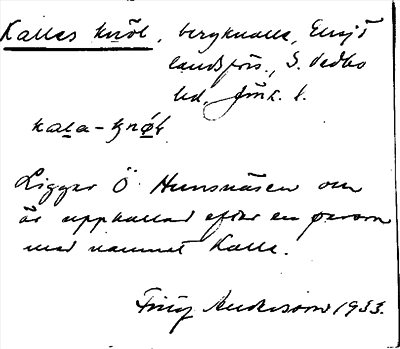 Kallas knöl, bergknalle, Eksjö
landsförs., S. Vedbo
hd, Jönk. l.
Liggar Ö Hunsnäsen om
är uppkallad efter en person
med namnet Kalle.
Fritz Andersson 1933.